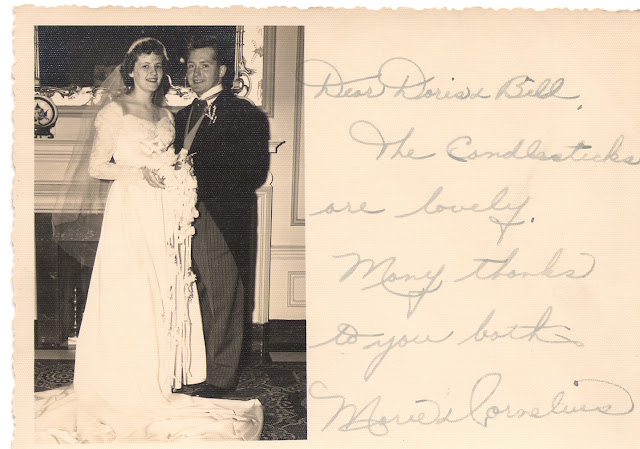 Dear Doris & Bill,
The Candlesticks
are lovely.
Many thanks
to you both.
Marie & Cornelius